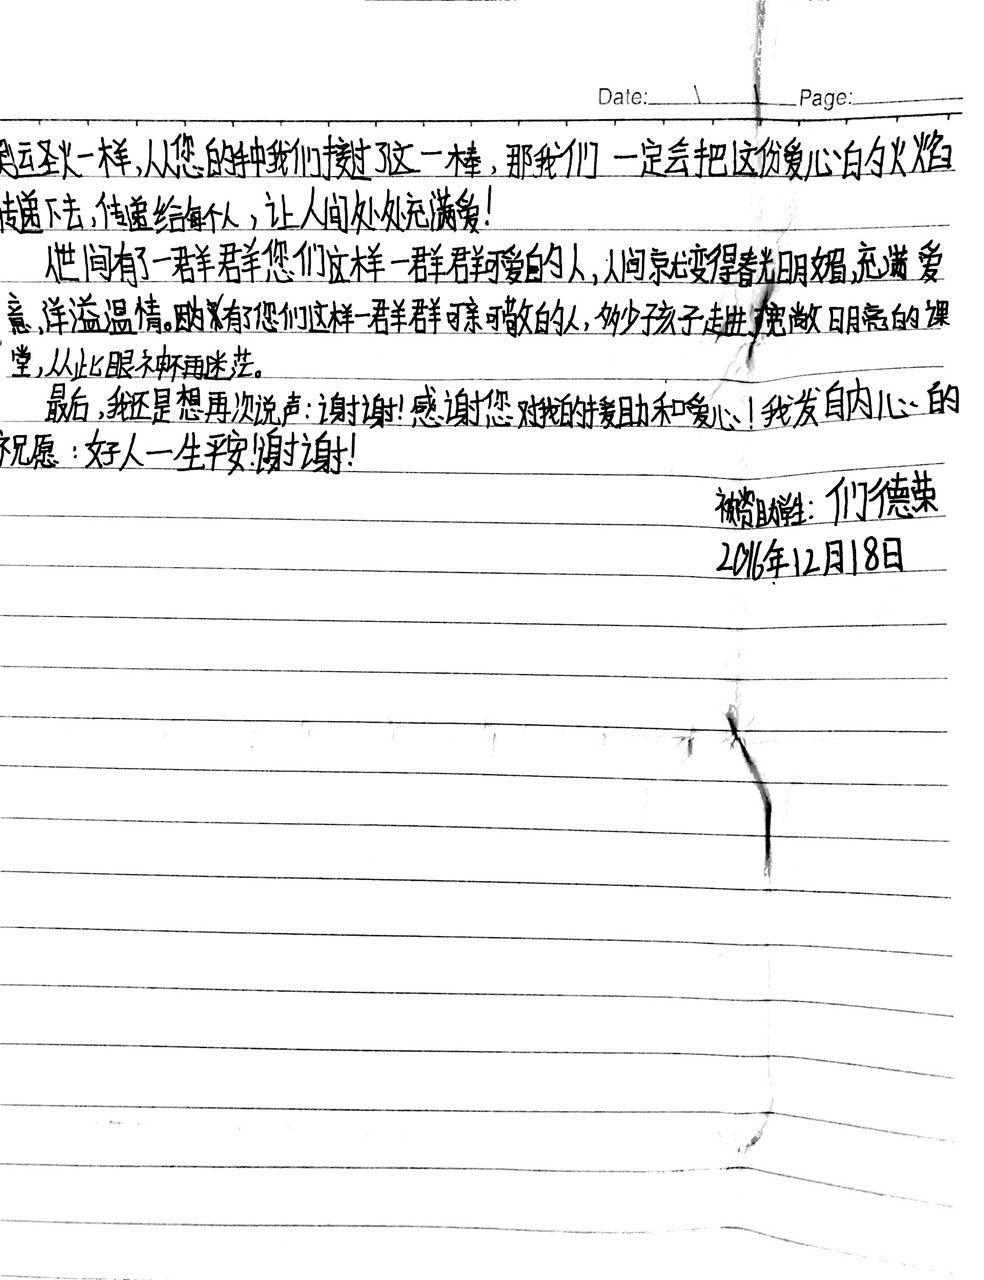 Date: \ Page:
奥运圣火一样,从您的手中我们接过了这一棒,那我们一定会把这份爱心的火焰
传递下去,传递给每个人,让人间处处充满爱!
人世间有了一群群您们这样一群群可爱的人,人间就变得春光明媚,充满爱
意,洋溢温情。因为有了您们这样一群群可亲可敬的人,多少孩子走进了宽敞明亮的课
堂,从此眼神不再迷茫。
最后,我还是想再次说声:谢谢!感谢您对我的援助和爱心!我发自内心的
祝愿:好人一生平安!谢谢!
被资助学生:们德荣
2016年12月18日